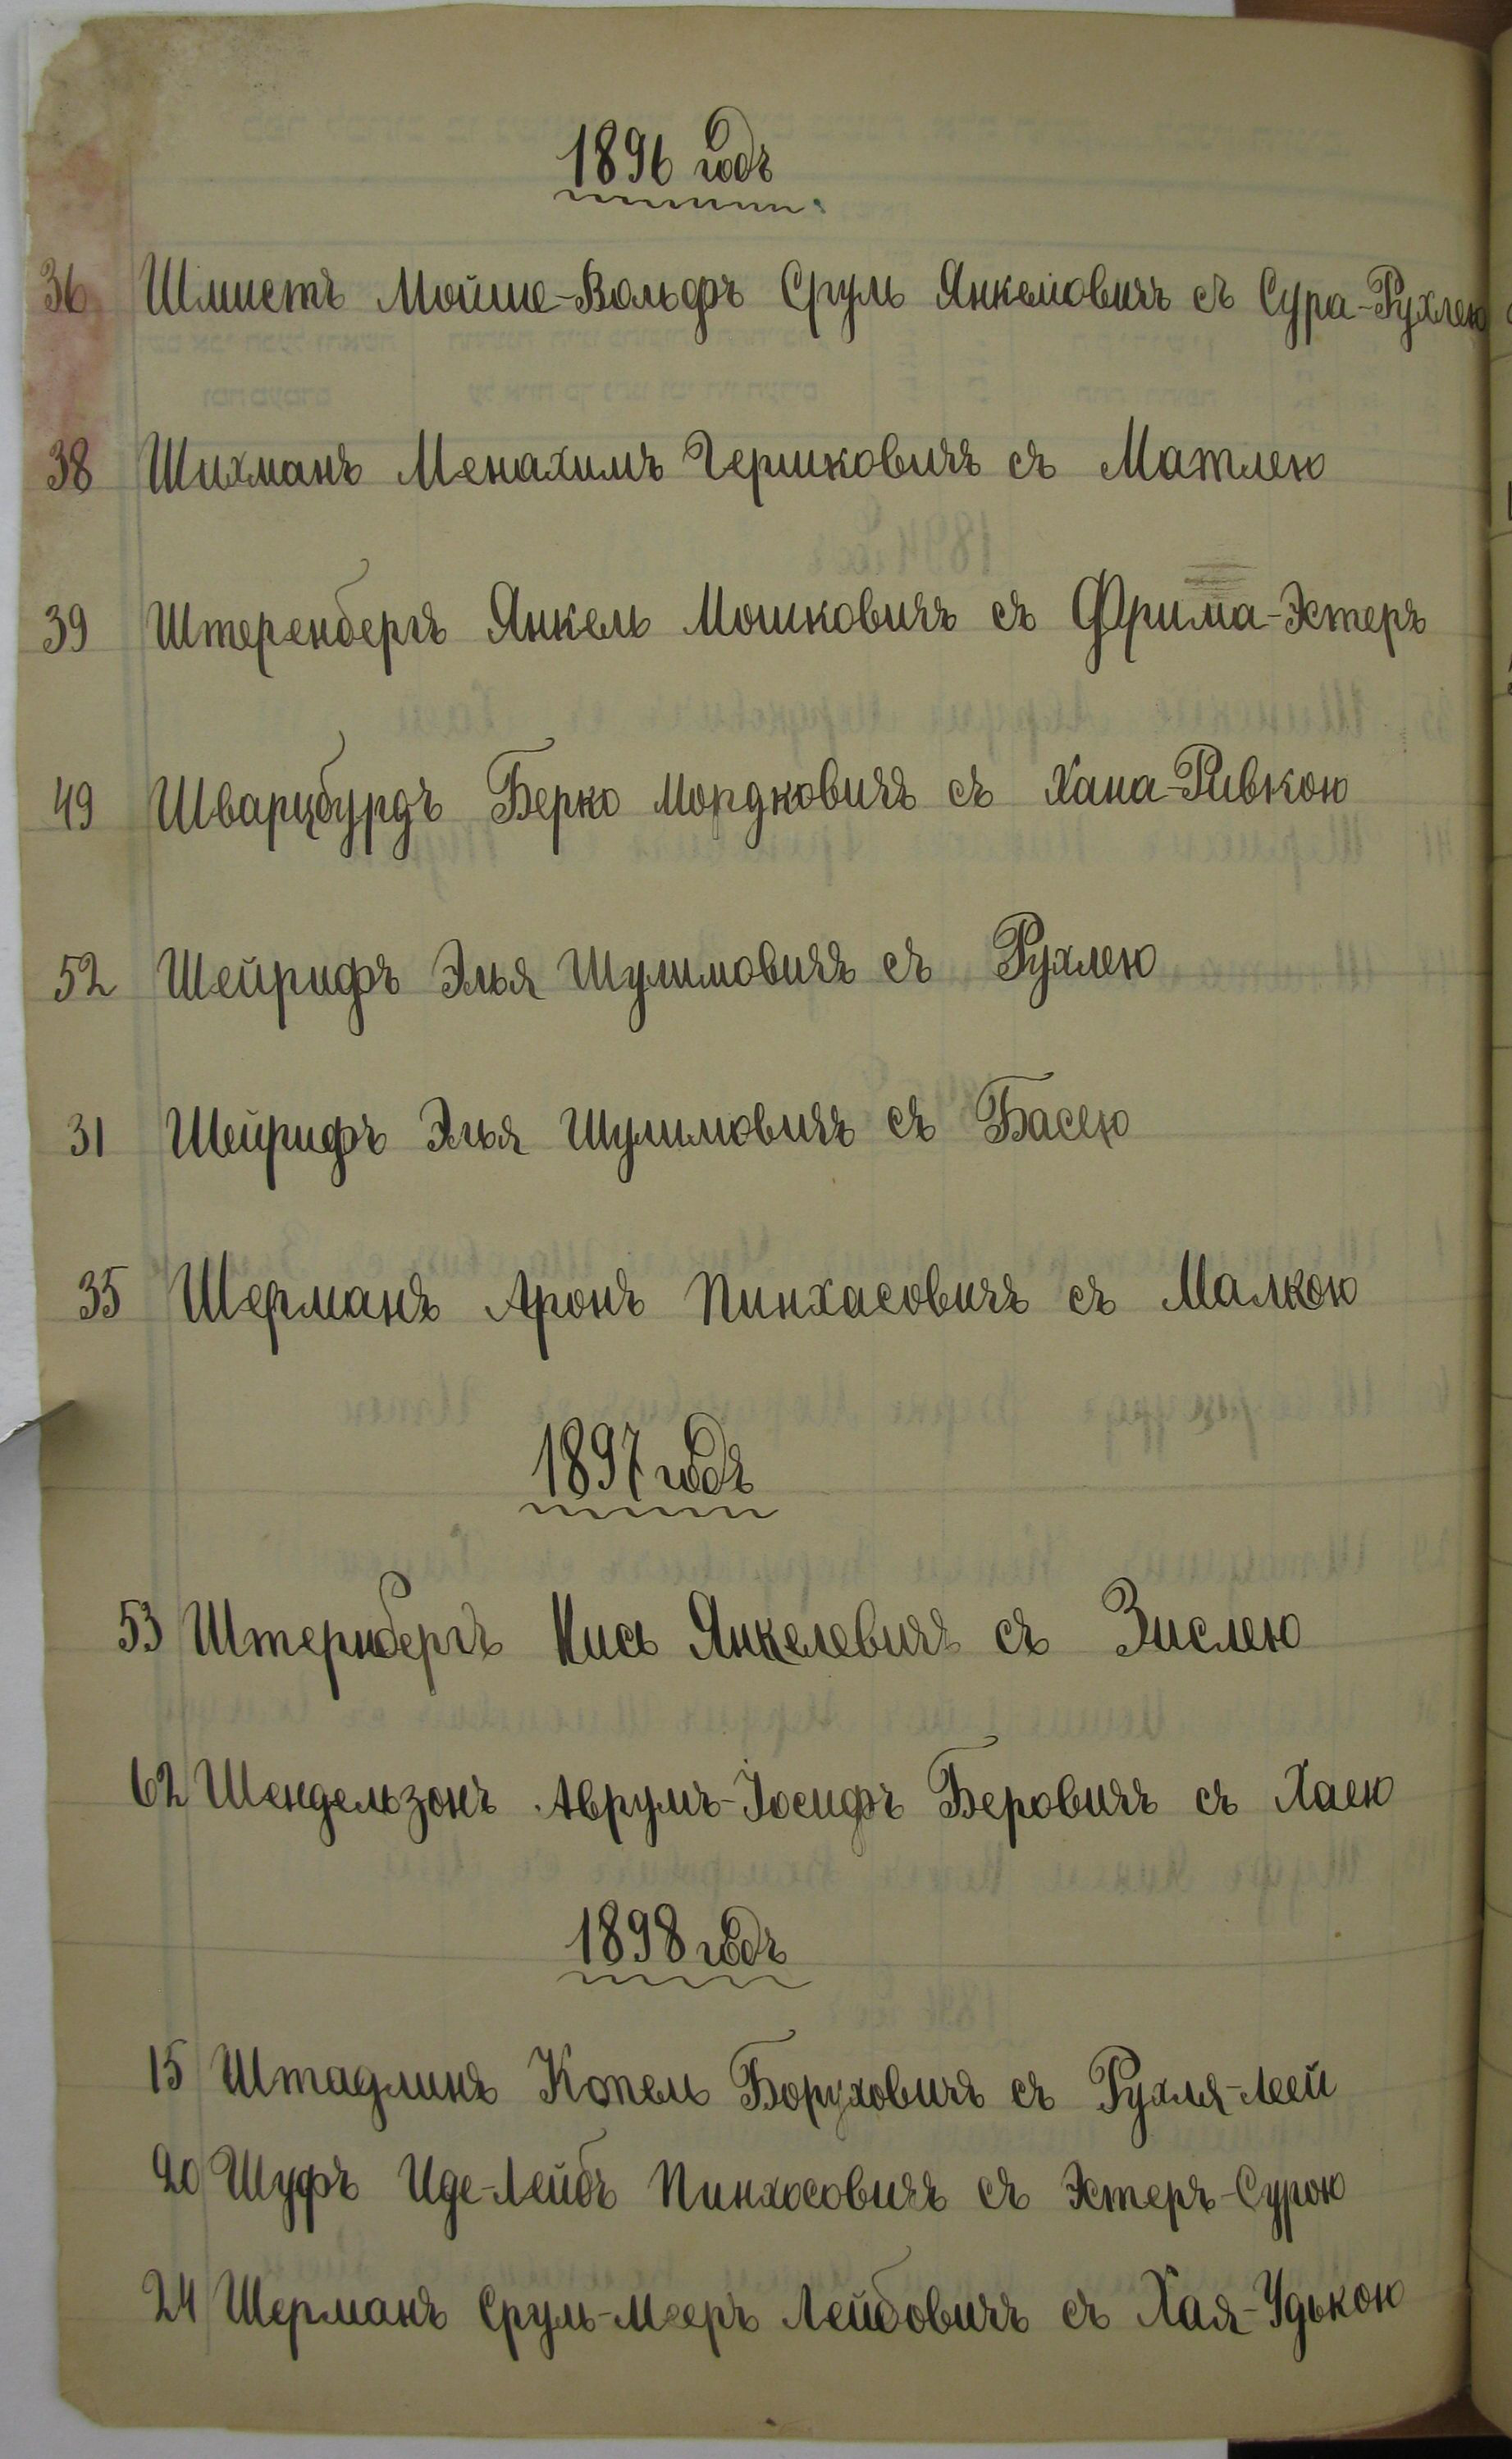 1896 годъ
36 Шмистъ Мойше-Вольфъ Сруль Янкелевичъ съ Сура-Рухлею
38 Шихманъ Менахимъ Гершковичъ съ Матлею
39 Штеренбергъ Янкель Мошковичъ съ Фрима-Эстеръ
49 Шварцбурдъ Берко Мордковичъ съ Хана-Ривкою
52 Шейрифъ Элья Шулимовичъ съ Рухлею
31 Шейрифъ Элья Шулимовичъ съ Басею
35 Шерманъ Аронъ Пинхасовичъ съ Малкою
1897 годъ
53 Штернбергъ Кись Янкелевичъ съ Зислею
62 Шендельзонъ Аврумъ-Іосифъ Беровичъ съ Хаею
1898 годъ
15 Штадлинъ Копель Боруховичъ съ Рухля-Леей
20 Шуфъ Иде-Лейбъ Пинхосовичъ съ Эстеръ-Сурою
24 Шерманъ Сруль-Мееръ Лейбовичъ съ Хая-Удькою